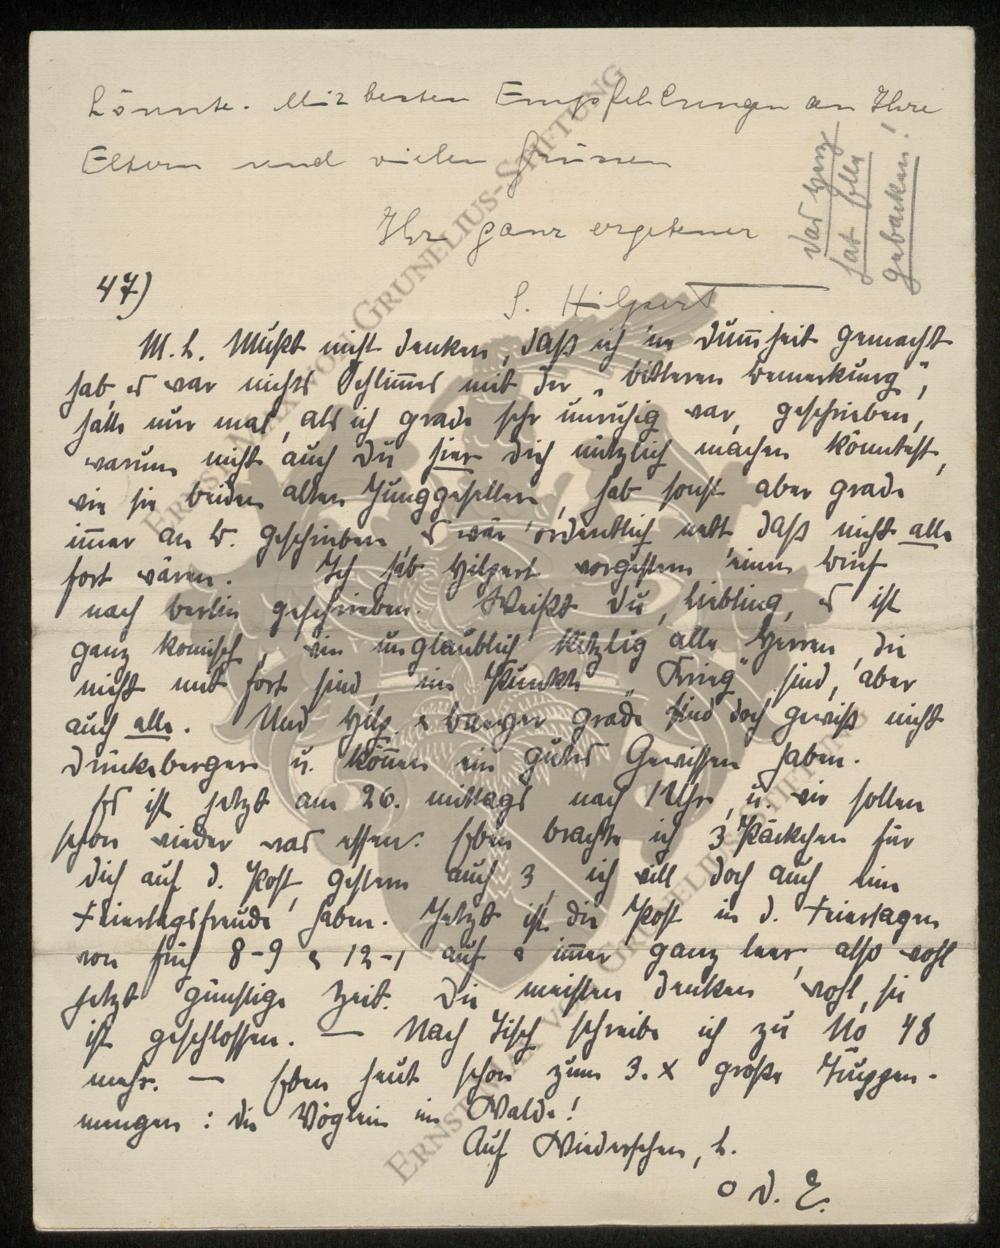 könnte. Mit besten Empfehlungen an Ihre
Eltern und vielen Grüssen
Ihr ganz ergebener
S. Hilpert
Das Herz
hat Elly
gebacken!
47)
M. L. Mußt nicht denken, daß ich 'ne Dummheit gemacht
hab, es war nichts Schlimmes mit der "bitteren Bemerkung",
hätte nur mal, als ich grade sehr unruhig war, geschrieben,
warum nicht auch Du hier Dich nützlich machen könntest,
wie die beiden alten Junggesellen, hab sonst aber grade
immer an B. geschrieben, es wär ordentlich nett daß nicht alle
fort wären. Ich hab Hilpert vorgestern einen Brief
nach Berlin geschrieben. Weißt Du, Liebling, es ist
ganz komisch, wie unglaublich kitzlig alle Herren, die
nicht mit fort sind, im Punkte "Krieg" sind, aber
auch alle. Und Hilp. & grade sind doch gewiß nicht
Drückeberger u. können ein gutes Gewissen haben.
Es ist jetzt am 26. mittags nach 1 Uhr, u. wir sollen
schon wieder was essen. Eben brachte ich 3 Päckchen für
Dich auf d. Post, gestern auch 3, ich will doch auch eine
Feiertagsfreude haben. Jetzt ist die Post in d. Feiertagen
von früh 8-9 & 12-1 auf & immer ganz leer, also wohl
jetzt günstige Zeit. Die meisten denken wohl, sie
ist geschlossen. — Nach Tisch schreibe ich zu No 48
mehr. — Eben heut schon zum 3. x große Truppen-
mengen: die Vöglein im Walde!
Auf Wiedersehen, L.
D. E.
ERNST MAX VON GRUNELIUS-STIFTUNG
ERNST MAX VON GRUNELIUS-STIFTUNG